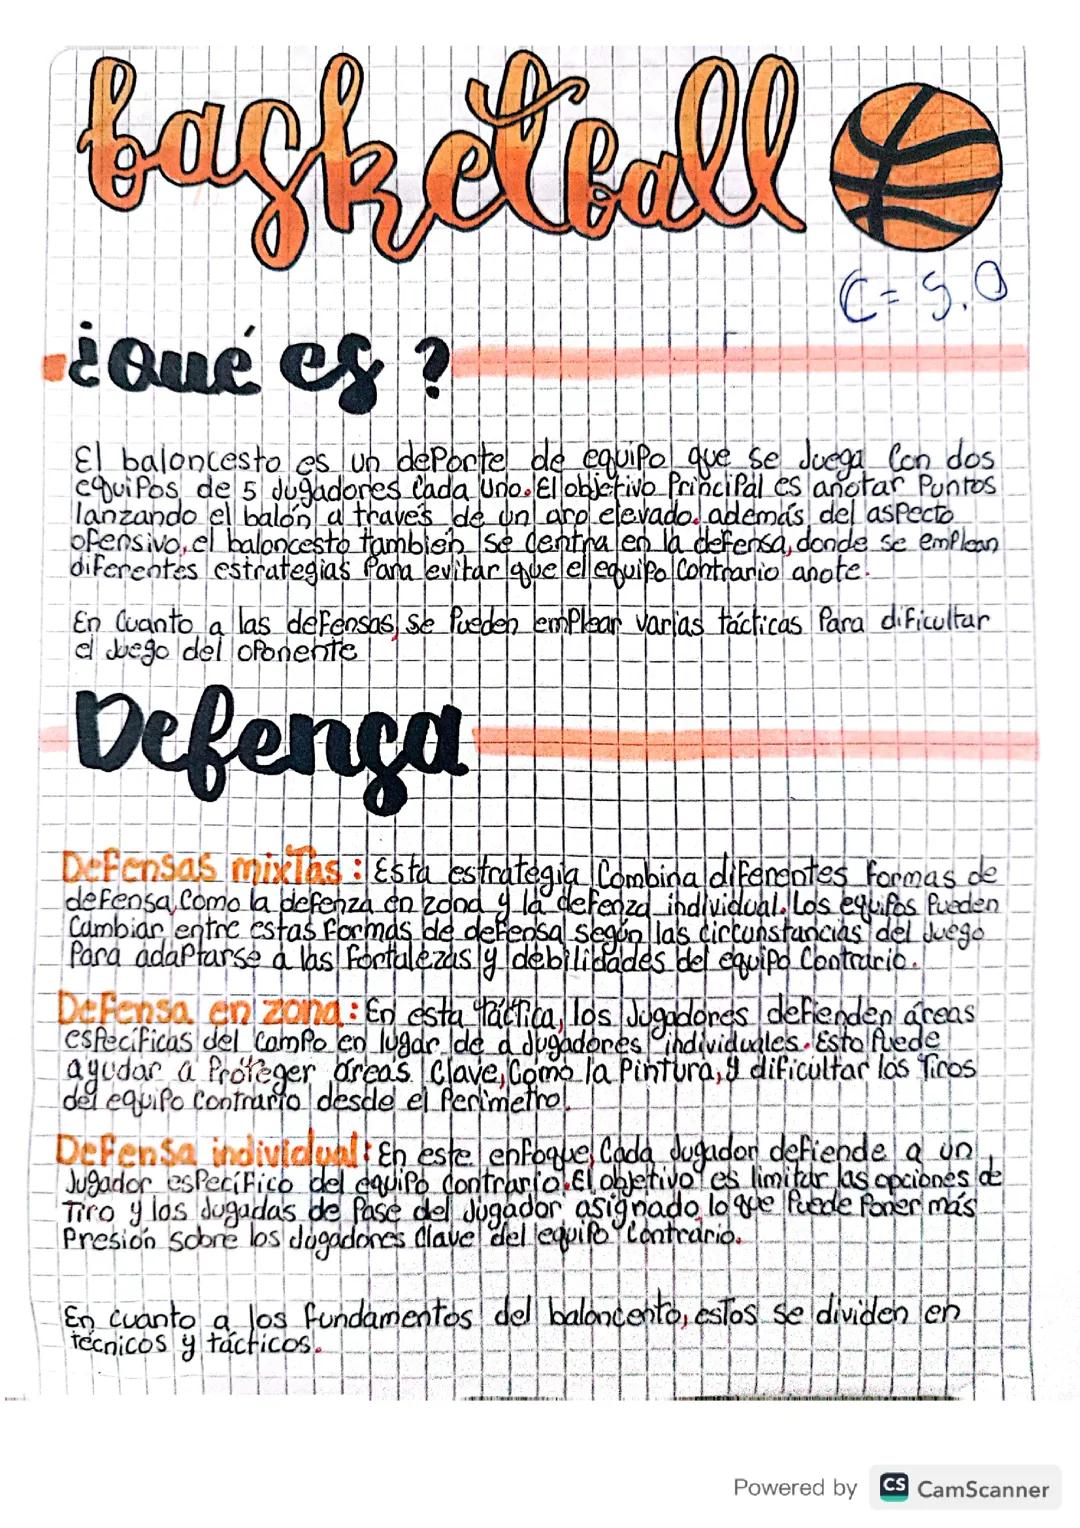 basketball
C= 5.0
¿Qué es?
El baloncesto es un deporte de equipo que se juega con dos
equipos de 5 jugadores cada uno. El objetivo principal es anotar puntos
lanzando el balón a través de un aro elevado. además del aspecto
ofensivo, el baloncesto tambien se centra en la defensa, donde se emplean
diferentes estrategias para evitar que el equipo contrario anote.
En cuanto a las defensas, se pueden emplear varias tácticas para dificultar
el juego del oponente
Defensa
Defensas mixtas: Esta estrategia combina diferentes formas de
defensa, como la defenza en zona y la defenza individual. Los equipos pueden
cambiar entre estas formas de defensa según las circunstancias del juego
para adaptarse a las fortalezas y debilidades del equipo contrario.
Defensa en zona: En esta táctica, los jugadores defienden áreas
específicas del campo en lugar de a jugadores individuales. Esto puede
ayudar a proteger áreas clave, como la pintura, y dificultar los tiros
del equipo contrario desde el perímetro.
Defensa individual: En este enfoque, cada jugador defiende a un
jugador específico del equipo contrario. El objetivo es limitar las opciones de
tiro y las jugadas de pase del jugador asignado, lo que puede poner más
presión sobre los jugadores clave del equipo contrario.
En cuanto a los fundamentos del baloncento, estos se dividen en
técnicos y tácticos.
Powered by CS CamScanner